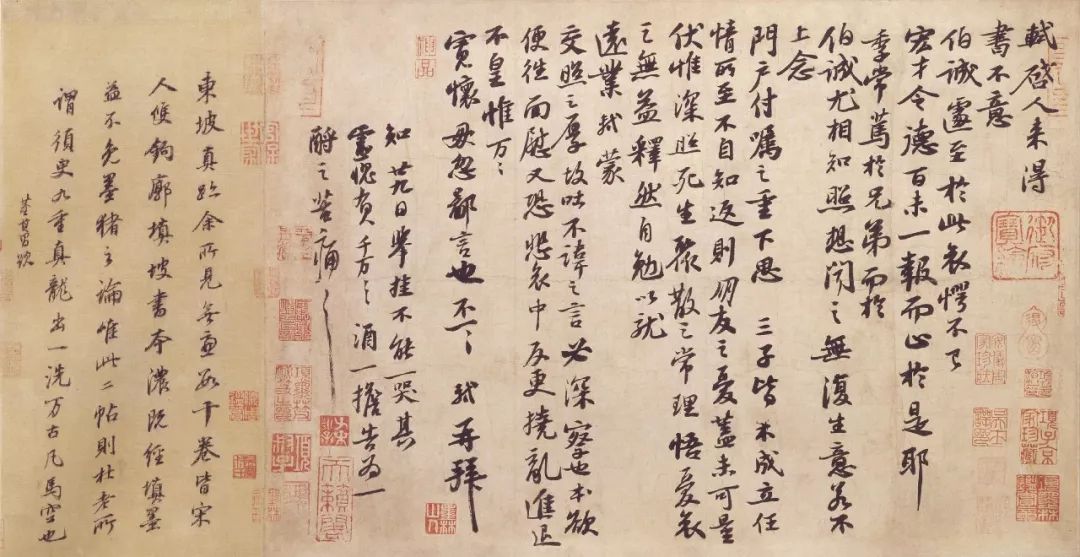 軾啓人来得
書不意
伯誠遽至於此哀愕不已
宏才令德百未一報而止於是耶
季常篤於兄弟而於
伯誠尤相知照想聞之無復生意若不
上念
門户付囑之重下思三子皆未成立任
情所至不自知返則朋友之憂蓋未可量
伏惟深照死生聚散之常理悟憂哀
之無益釋然自勉以就
遠業軾蒙
交照之厚故吐不諱之言必深察也本欲
便往面慰又恐悲哀中反更撓亂進退
不皇惟万〻
寬懷毋忽鄙言也不一〻軾再拜
知廿九日舉挂不能一哭其
靈愧負千万〻酒一擔告为一
酹之苦痛〻
東坡真跡余所見無慮數十卷皆宋
人雙鉤廓填坡書本濃既經填墨
益不免墨豬之論惟此二帖則杜老所
謂須臾九重真龍出一洗万古凡馬空也
董其昌題
項子京家珍藏